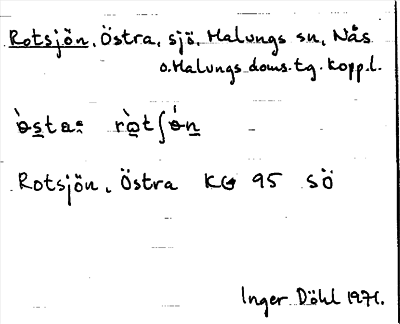 Rotsjön, Östra, sjö, Malungs sn, Nås
o. Malungs doms. tg. Kopp. l.
Rotsjön, Östra KG 95 SÖ
Inger Döhl 1971.